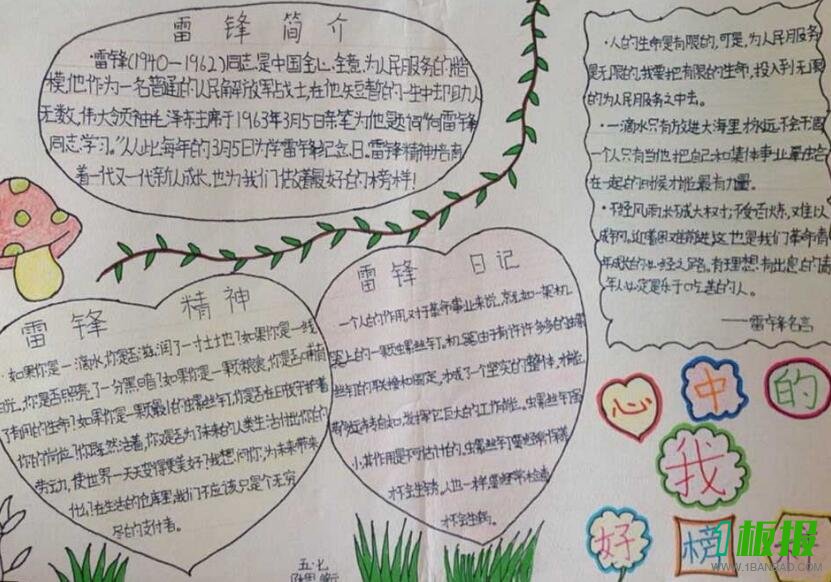 雷锋简介
·雷锋(1940—1962)同志,是中国全心全意,为人民服务的楷
模,他作为一名普通的人民解放军战士,在他短暂的一生中却助人
无数,伟大领袖毛泽东主席于1963年3月5日亲笔为他题词"向雷锋
同志学习。"从此每年的3月5日为学雷锋纪念日。雷锋精神培育
着一代又一代新人成长,也为我们估着最好的榜样!
·人的生命是有限的,可是,为人民服务
是无限的,我要把有限的生命,投入到无限
的为人民服务之中去。
·一滴水只有放进大海里才永远不会干涸
一个人只有当他把自己和集体事业
在一起的时候才能最有力量。
·不经风雨,长不成大树;不受百炼,难以
成钢。迎着困难前进,这也是我们革命青
年成长的必经之路。有理想有出息的青
年人必定是乐于吃苦的人。
——雷锋名言
雷锋精神
·如果你是一滴水,你是否滋润了一寸土地?如果你是一线
阳光,你是否照亮了一分黑暗?如果你是一颗粮食,你是否哺育
了有用的生命?如果你是一颗最小的螺丝钉,你是否在日夜守护着
你的岗位?你既然活着,你又是否为了未来的人类生活付出你的
劳动,使世界一天天变得更美好?我想问你,为未来带来
在生活的仓库里,我们不应该只是个无穷
尽的支付者。
雷锋日记
一个人的作用,对于革命事业来说,就如一架机
器上的一颗螺丝钉。机器由于有许许多多的螺
丝钉的联接和固定,才成了一个坚实的整体,才能
运转自如,发挥它巨大的工作能。螺丝钉虽
小,其作用是不可估计的。螺丝钉要经常保养
才不会生锈。人也一样,要经常检查
才不会生病。
心中的
我
好榜
五·七
1板报
WWW.1BANBAO.COM